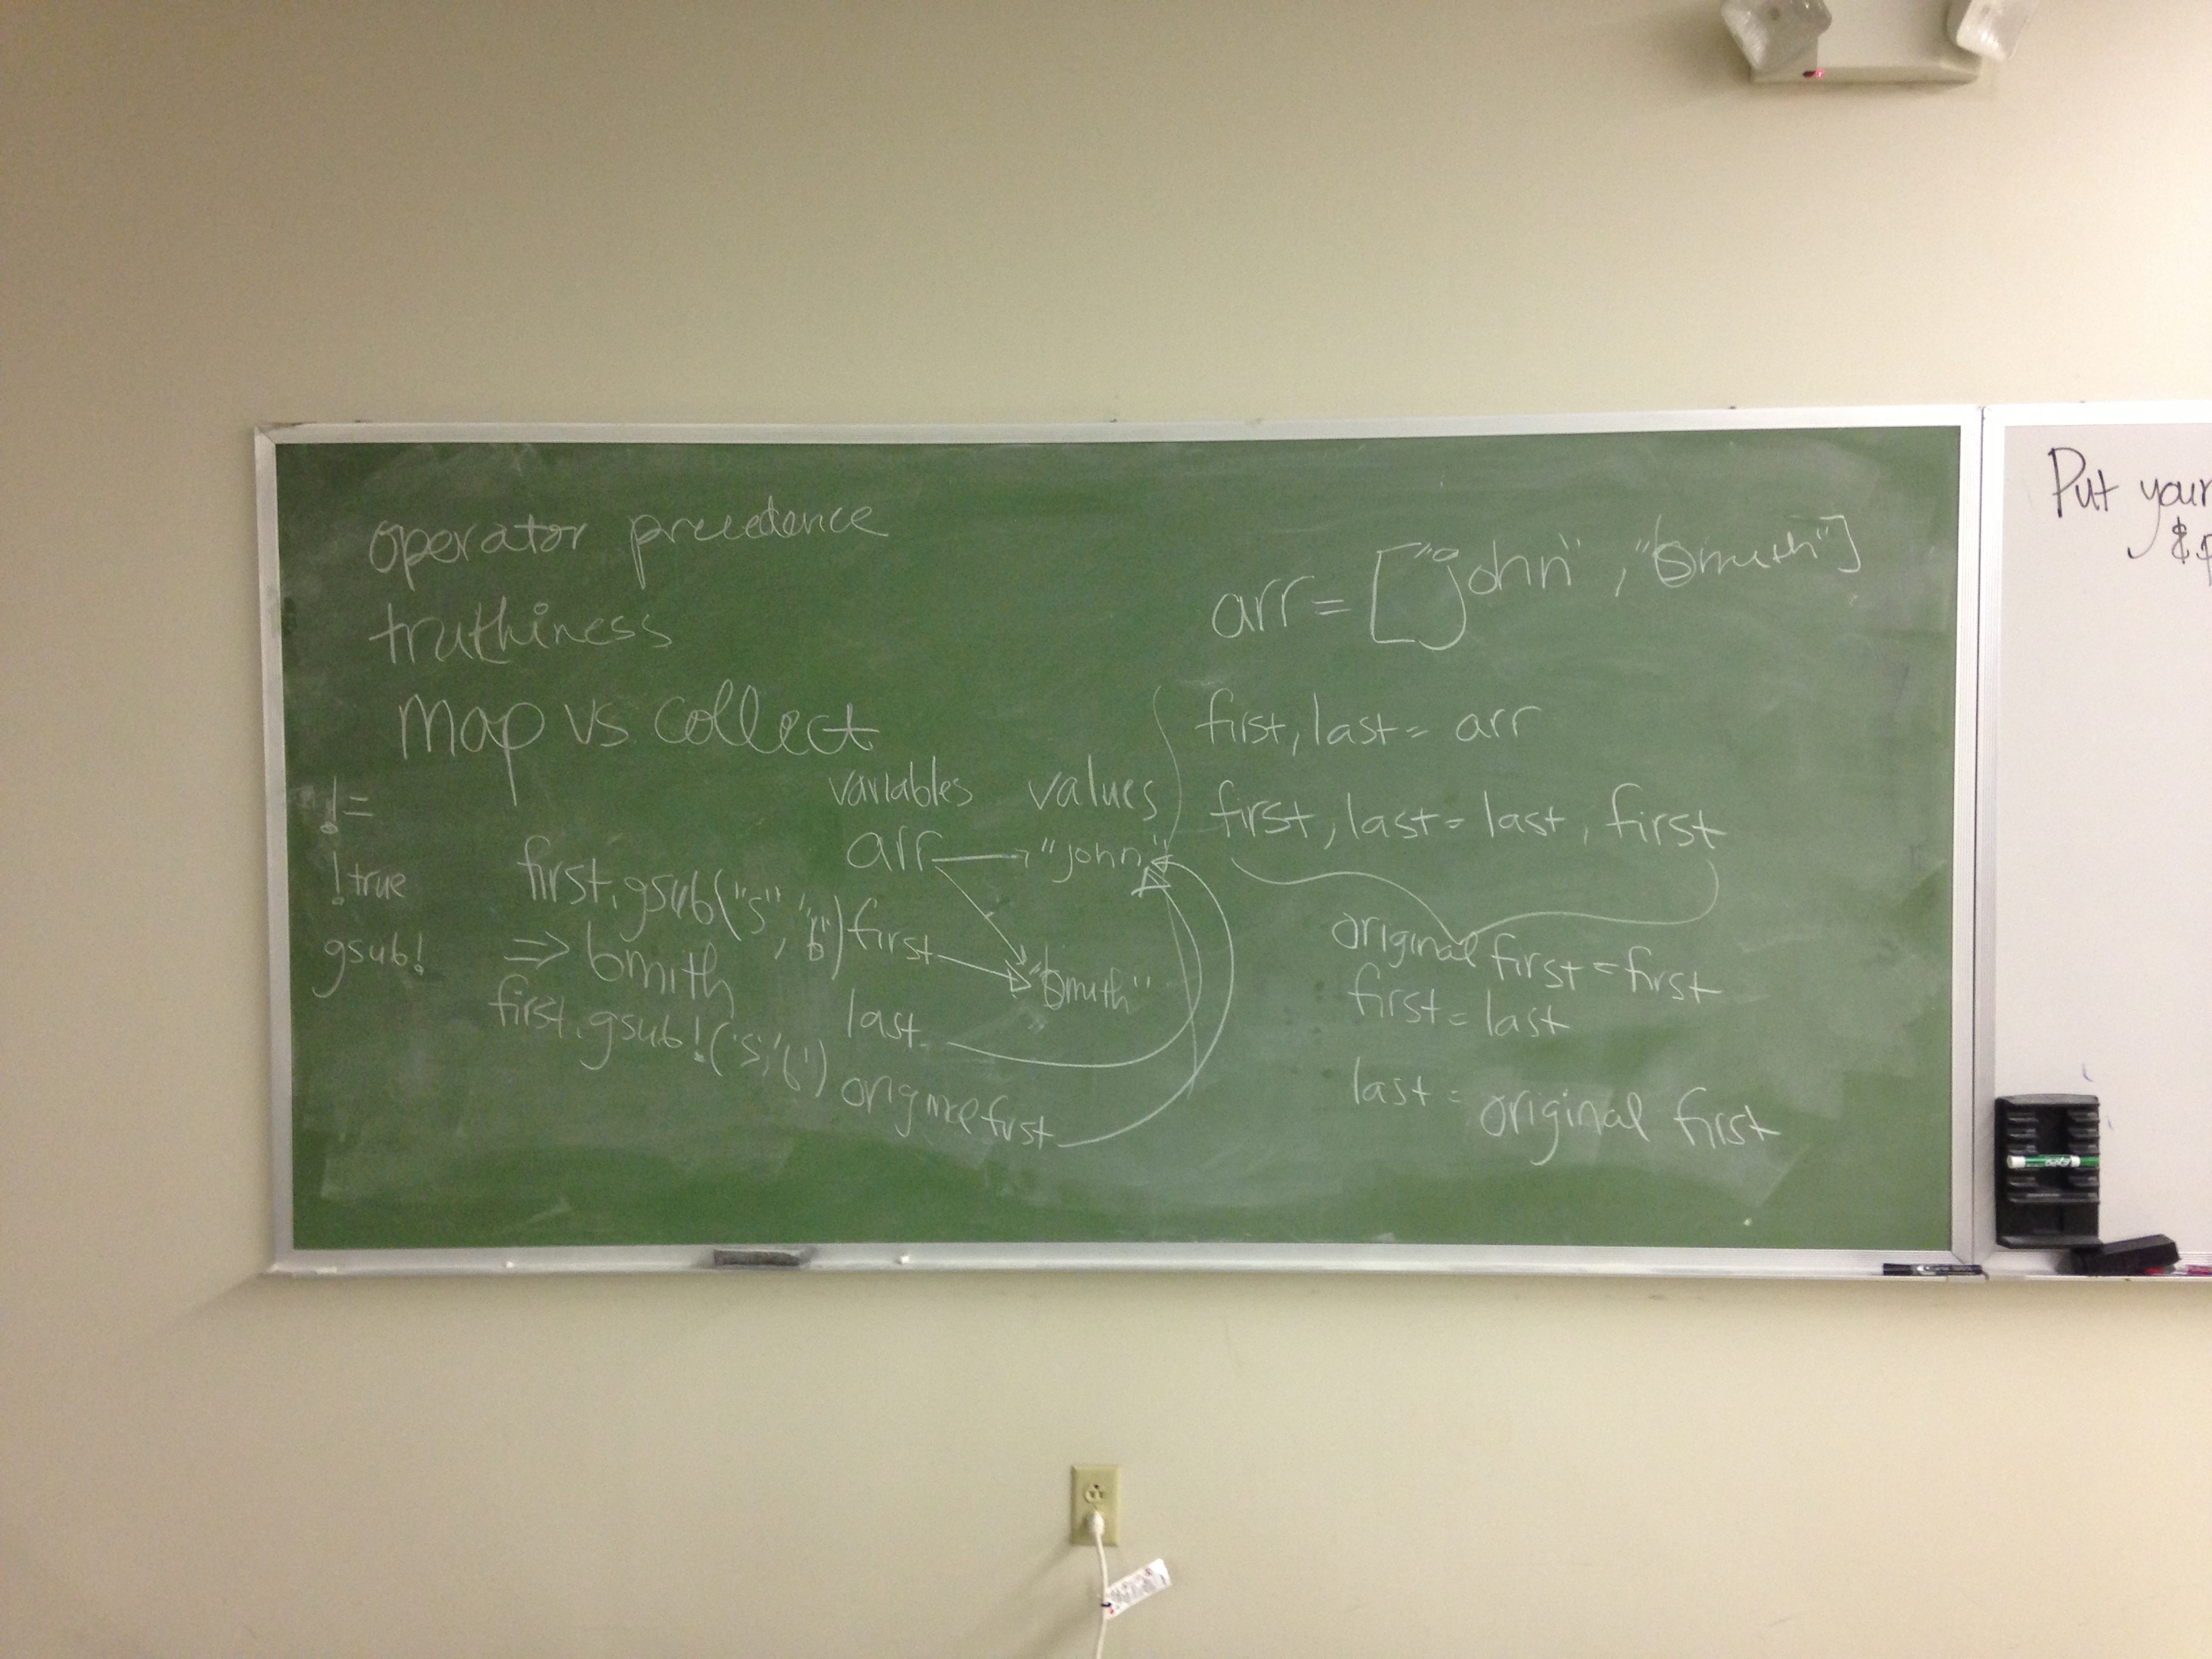 operator precedence
truthiness
map vs collect
!=
!true
gsub!
first.gsub("s", "b")
=> bmith
first.gsub!('s','b')
variables values
arr "john"
first "bmith"
last
original first
arr = ["john", "bmith"]
first, last = arr
first, last = last, first
original first = first
first = last
last = original first
Put your